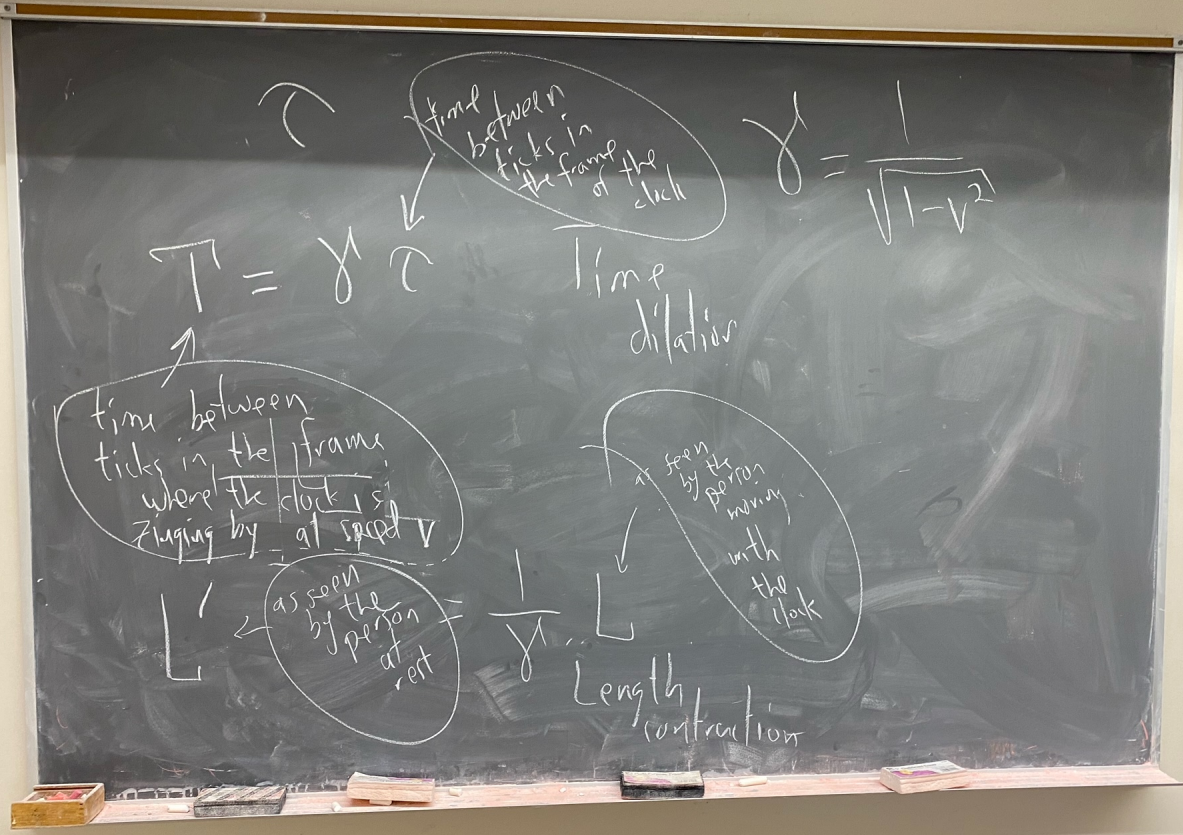 τ
time
between
ticks in
the frame
of the
clock
γ = 1/√(1-v²)
T = γ τ
Time
dilation
time between
ticks in the frame
where the clock is
zinging by at speed v
as seen
by the
person
moving
with
the
clock
L' = 1/γ L
as seen
by the
person
at
rest
Length
contraction